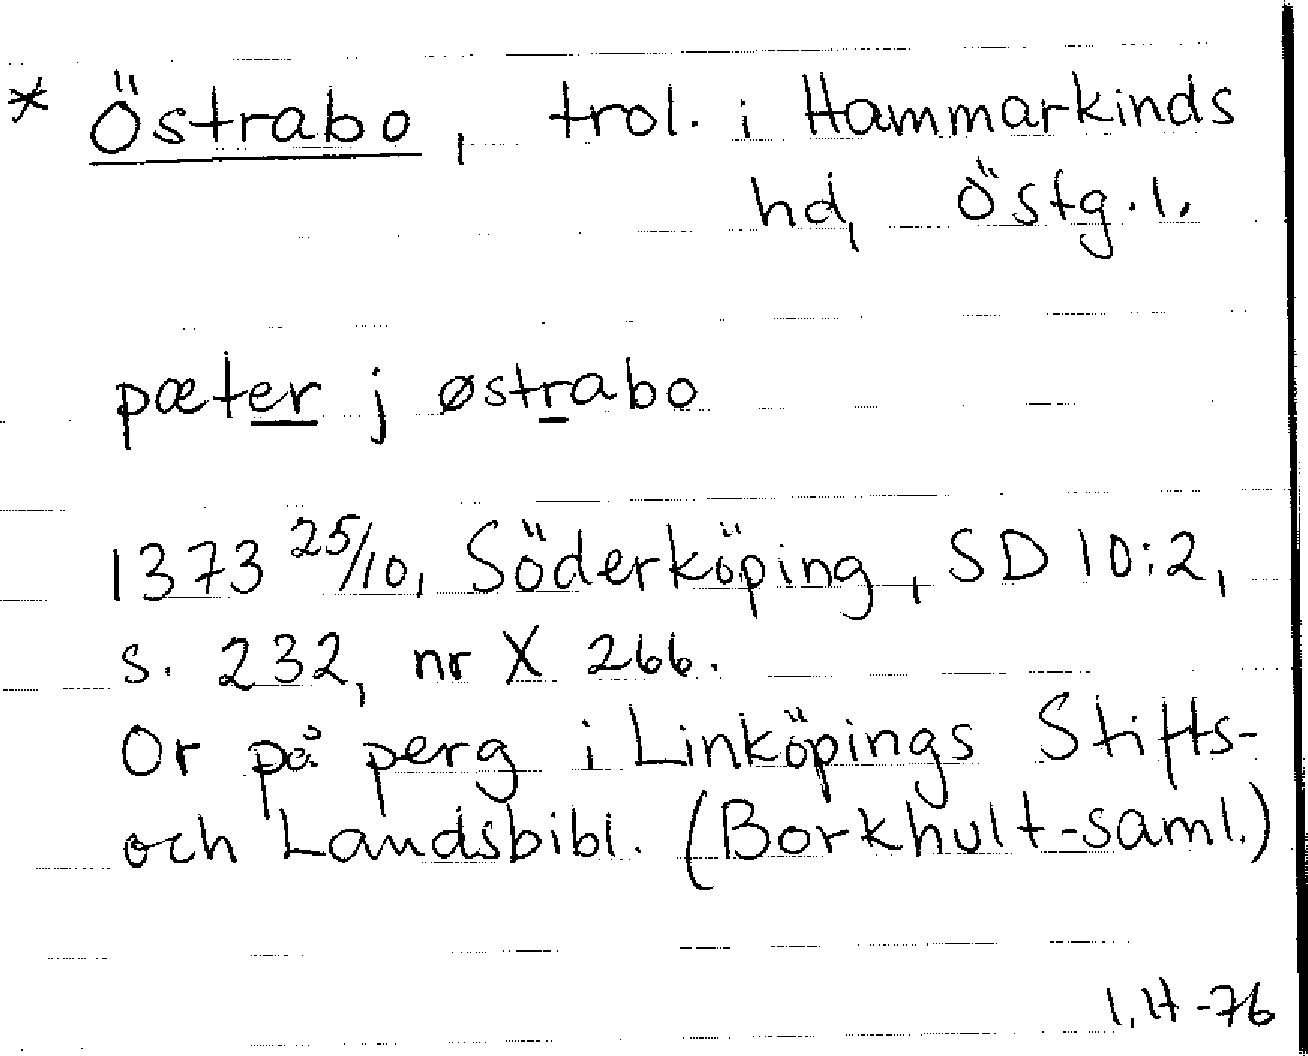 * Östrabo, trol. i Hammarkinds
hd, Östg.l.
pæter j østrabo
1373 25/10, Söderköping, SD 10:2,
s. 232, nr X 266.
Or på perg i Linköpings Stifts-
och Landsbibl. (Borkhult-saml.)
I.H-76